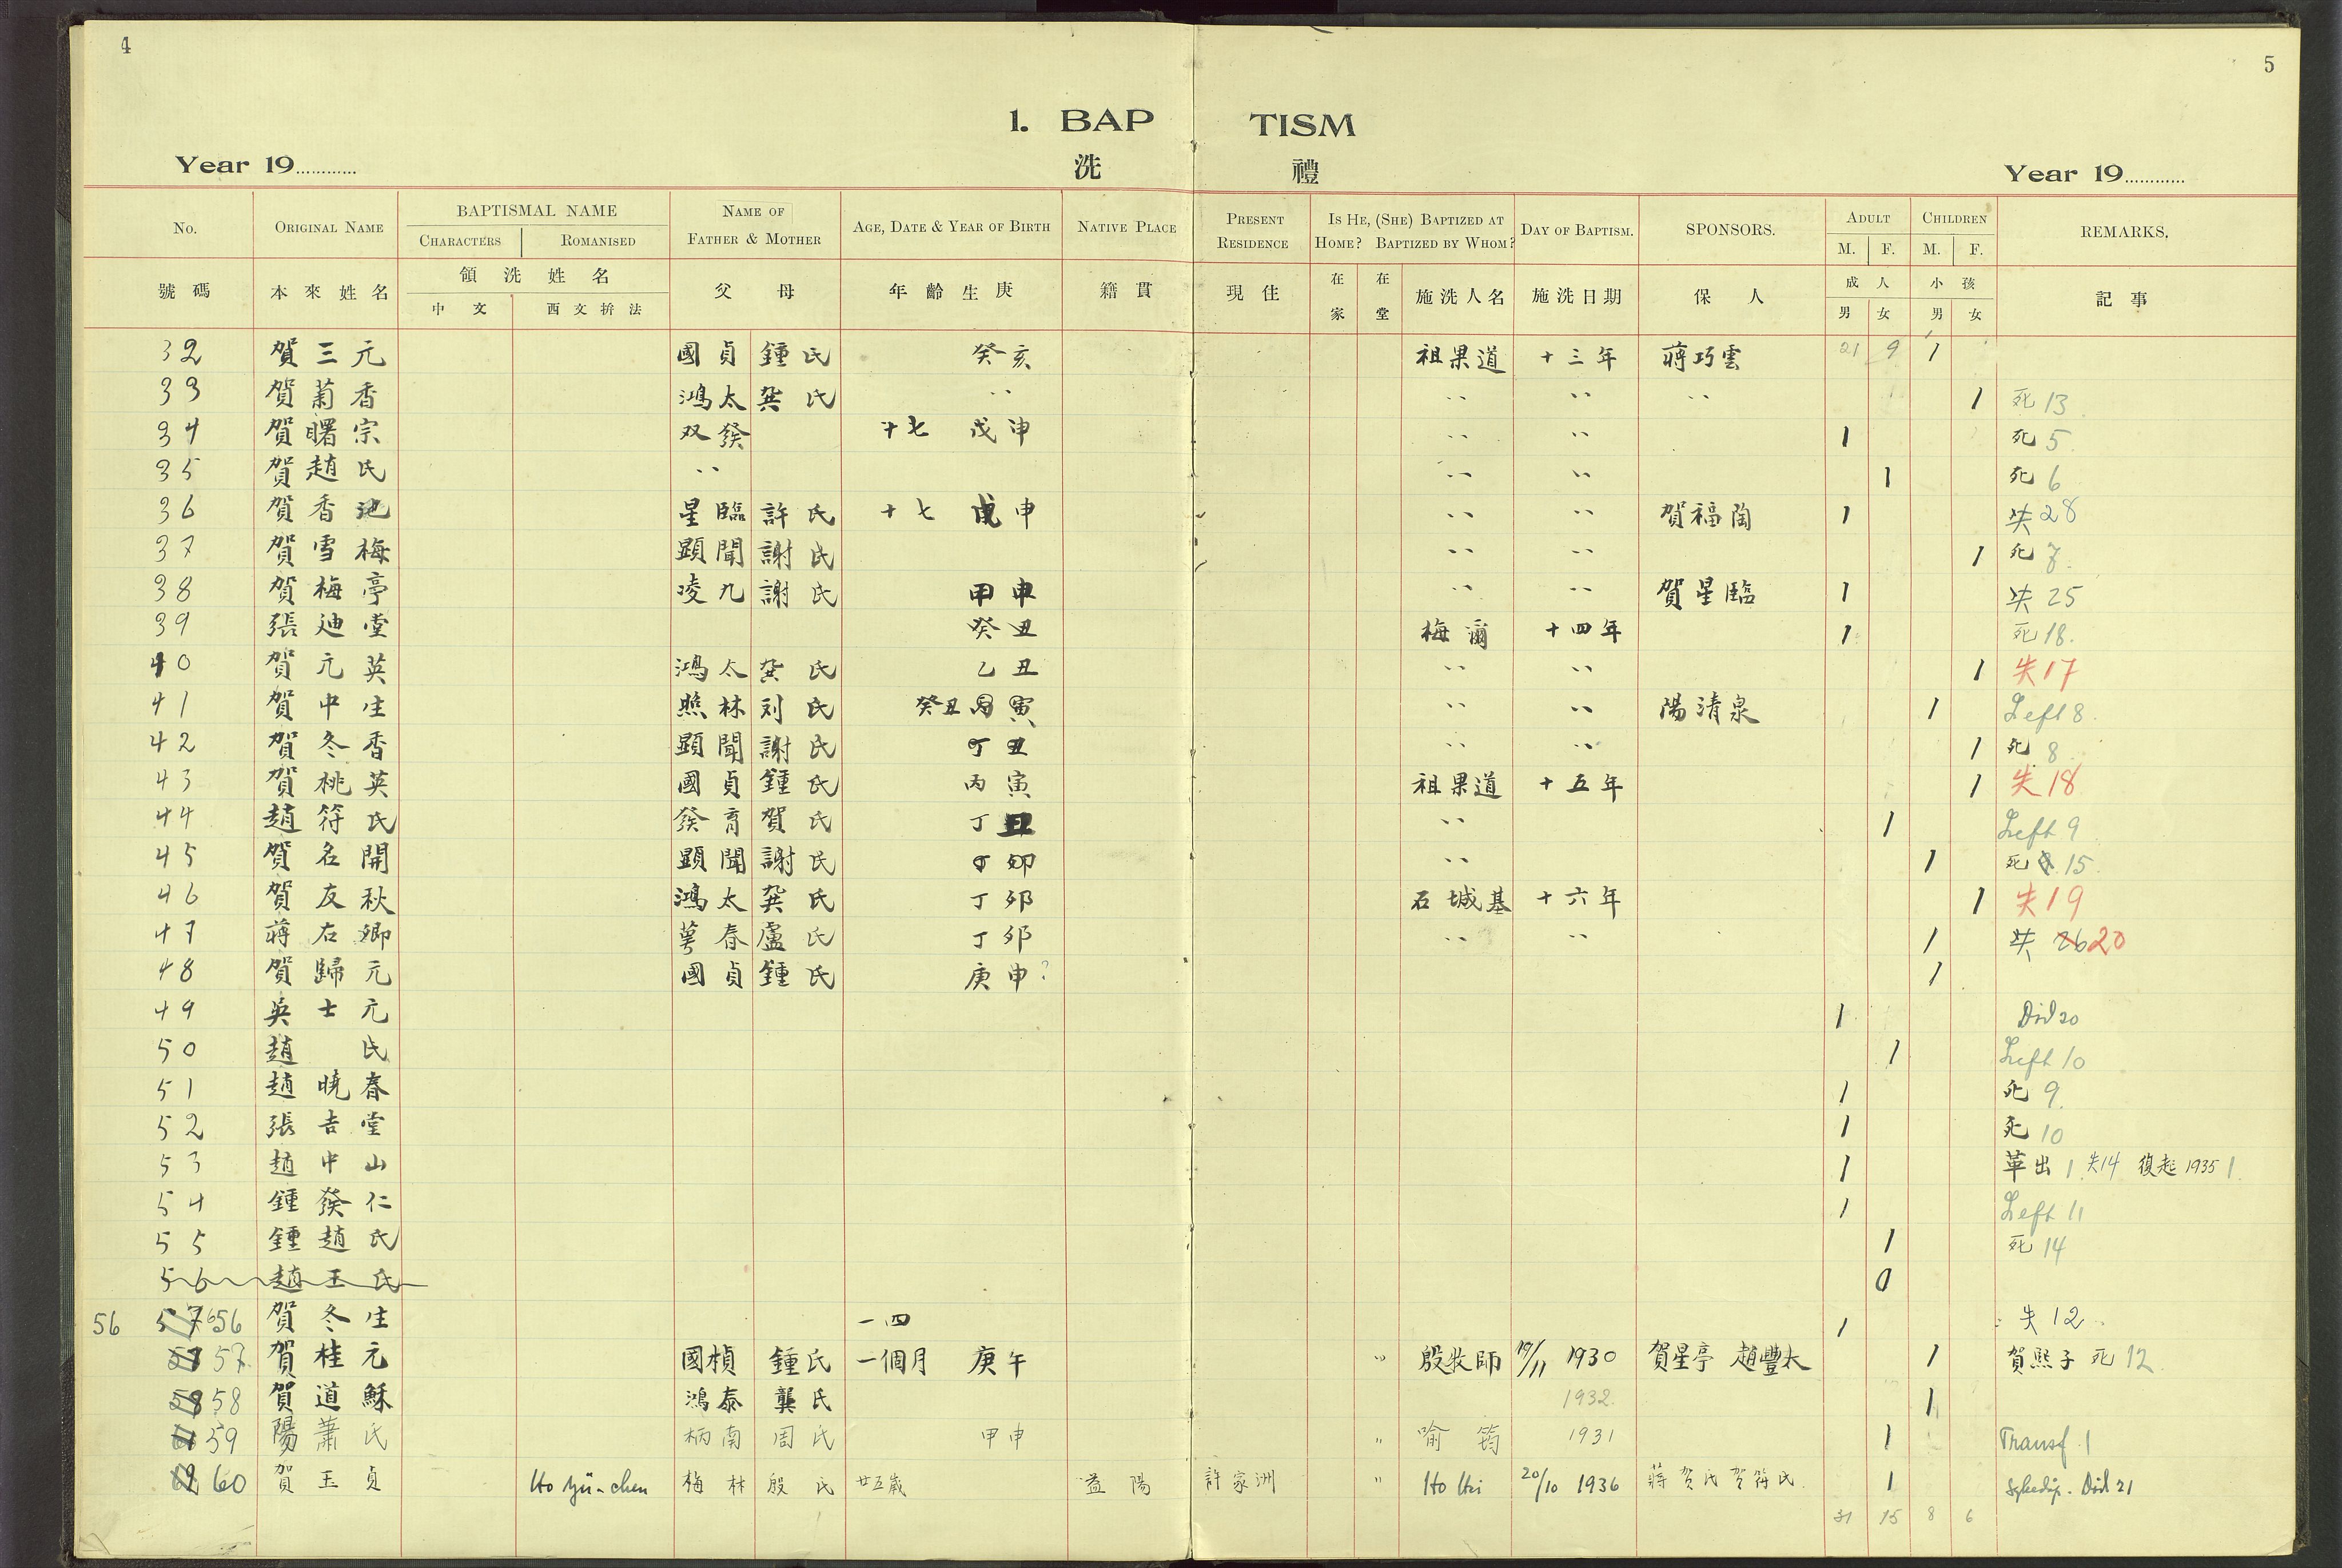 4
5
1. BAP TISM
洗 禮
Year 19............ Year 19............
No. ORIGINAL NAME BAPTISMAL NAME NAME OF FATHER & MOTHER AGE, DATE & YEAR OF BIRTH NATIVE PLACE PRESENT RESIDENCE IS HE, (SHE) BAPTIZED AT HOME? BAPTIZED BY WHOM? DAY OF BAPTISM. SPONSORS. ADULT CHILDREN REMARKS,
CHARACTERS ROMANISED M. F. M. F.
號碼 本來姓名 領洗姓名 父母 年齡生庚 籍貫 現住 在家 在堂 施洗人名 施洗日期 保人 成人 小孩 記事
中文 西文拚法 男 女 男 女
32 賀三元 國貞 鍾氏 癸亥 祖果道 十三年 蔣巧雲 21 9 1
33 賀菊香 鴻太 龔氏 〃 〃 〃 〃 1 死 13
34 賀曙宗 双發 十七 戊申 〃 〃 1 死 5
35 賀趙氏 〃 〃 〃 1 死 6
36 賀香池 星臨 許氏 十七 戊申 〃 〃 賀福陶 1 失 28
37 賀雪梅 顕聞 謝氏 〃 〃 1 死 7
38 賀梅亭 凌九 謝氏 甲申 〃 〃 賀星臨 1 失 25
39 張迪堂 癸丑 梅爾 十四年 1 死 18.
40 賀元英 鴻太 龔氏 乙丑 〃 〃 1 失 17
41 賀中生 照林 刘氏 癸丑 寅 〃 〃 陽清泉 1 Left 8.
42 賀冬香 顕聞 謝氏 丁丑 〃 〃 1 死 8.
43 賀桃英 國貞 鍾氏 丙寅 祖果道 十五年 1 失 18
44 趙符氏 發育 賀氏 丁丑 〃 1 Left 9
45 賀名開 顕聞 謝氏 丁卯 〃 1 死 15.
46 賀友秋 鴻太 龔氏 丁卯 石城基 十六年 1 失 19
47 蔣右卿 萼春 盧氏 丁卯 〃 〃 1 失 26 20
48 賀歸元 國貞 鍾氏 庚申? 1
49 吳士元 1 Död 20
50 趙氏 1 Left 10
51 趙曉春 1 死 9.
52 張吉堂 1 死 10
53 趙中山 1 革出 1 失14 復起 1935 1.
54 鍾發仁 1 Left 11
55 鍾趙氏 1 死 14
56 趙王氏 0
56 57 56 賀冬生 一四 1 失 12
57 賀桂元 國楨 鍾氏 一個月 庚午 〃 殷牧師 19/11 1930 賀星亭 趙豐太 1 賀熙子 死 12
58 賀道穌 鴻泰 龔氏 1932. 1
59 陽蕭氏 柄南 周氏 甲申 〃 喻筠 1931 1 Transf. 1
60 賀玉貞 Ho Yü-chen 梅林 殷氏 廿五歲 益陽 許家洲 〃 Ho Hsi 20/10 1936 蔣賀氏 賀符氏. 1 Död 21
31 15 8 6